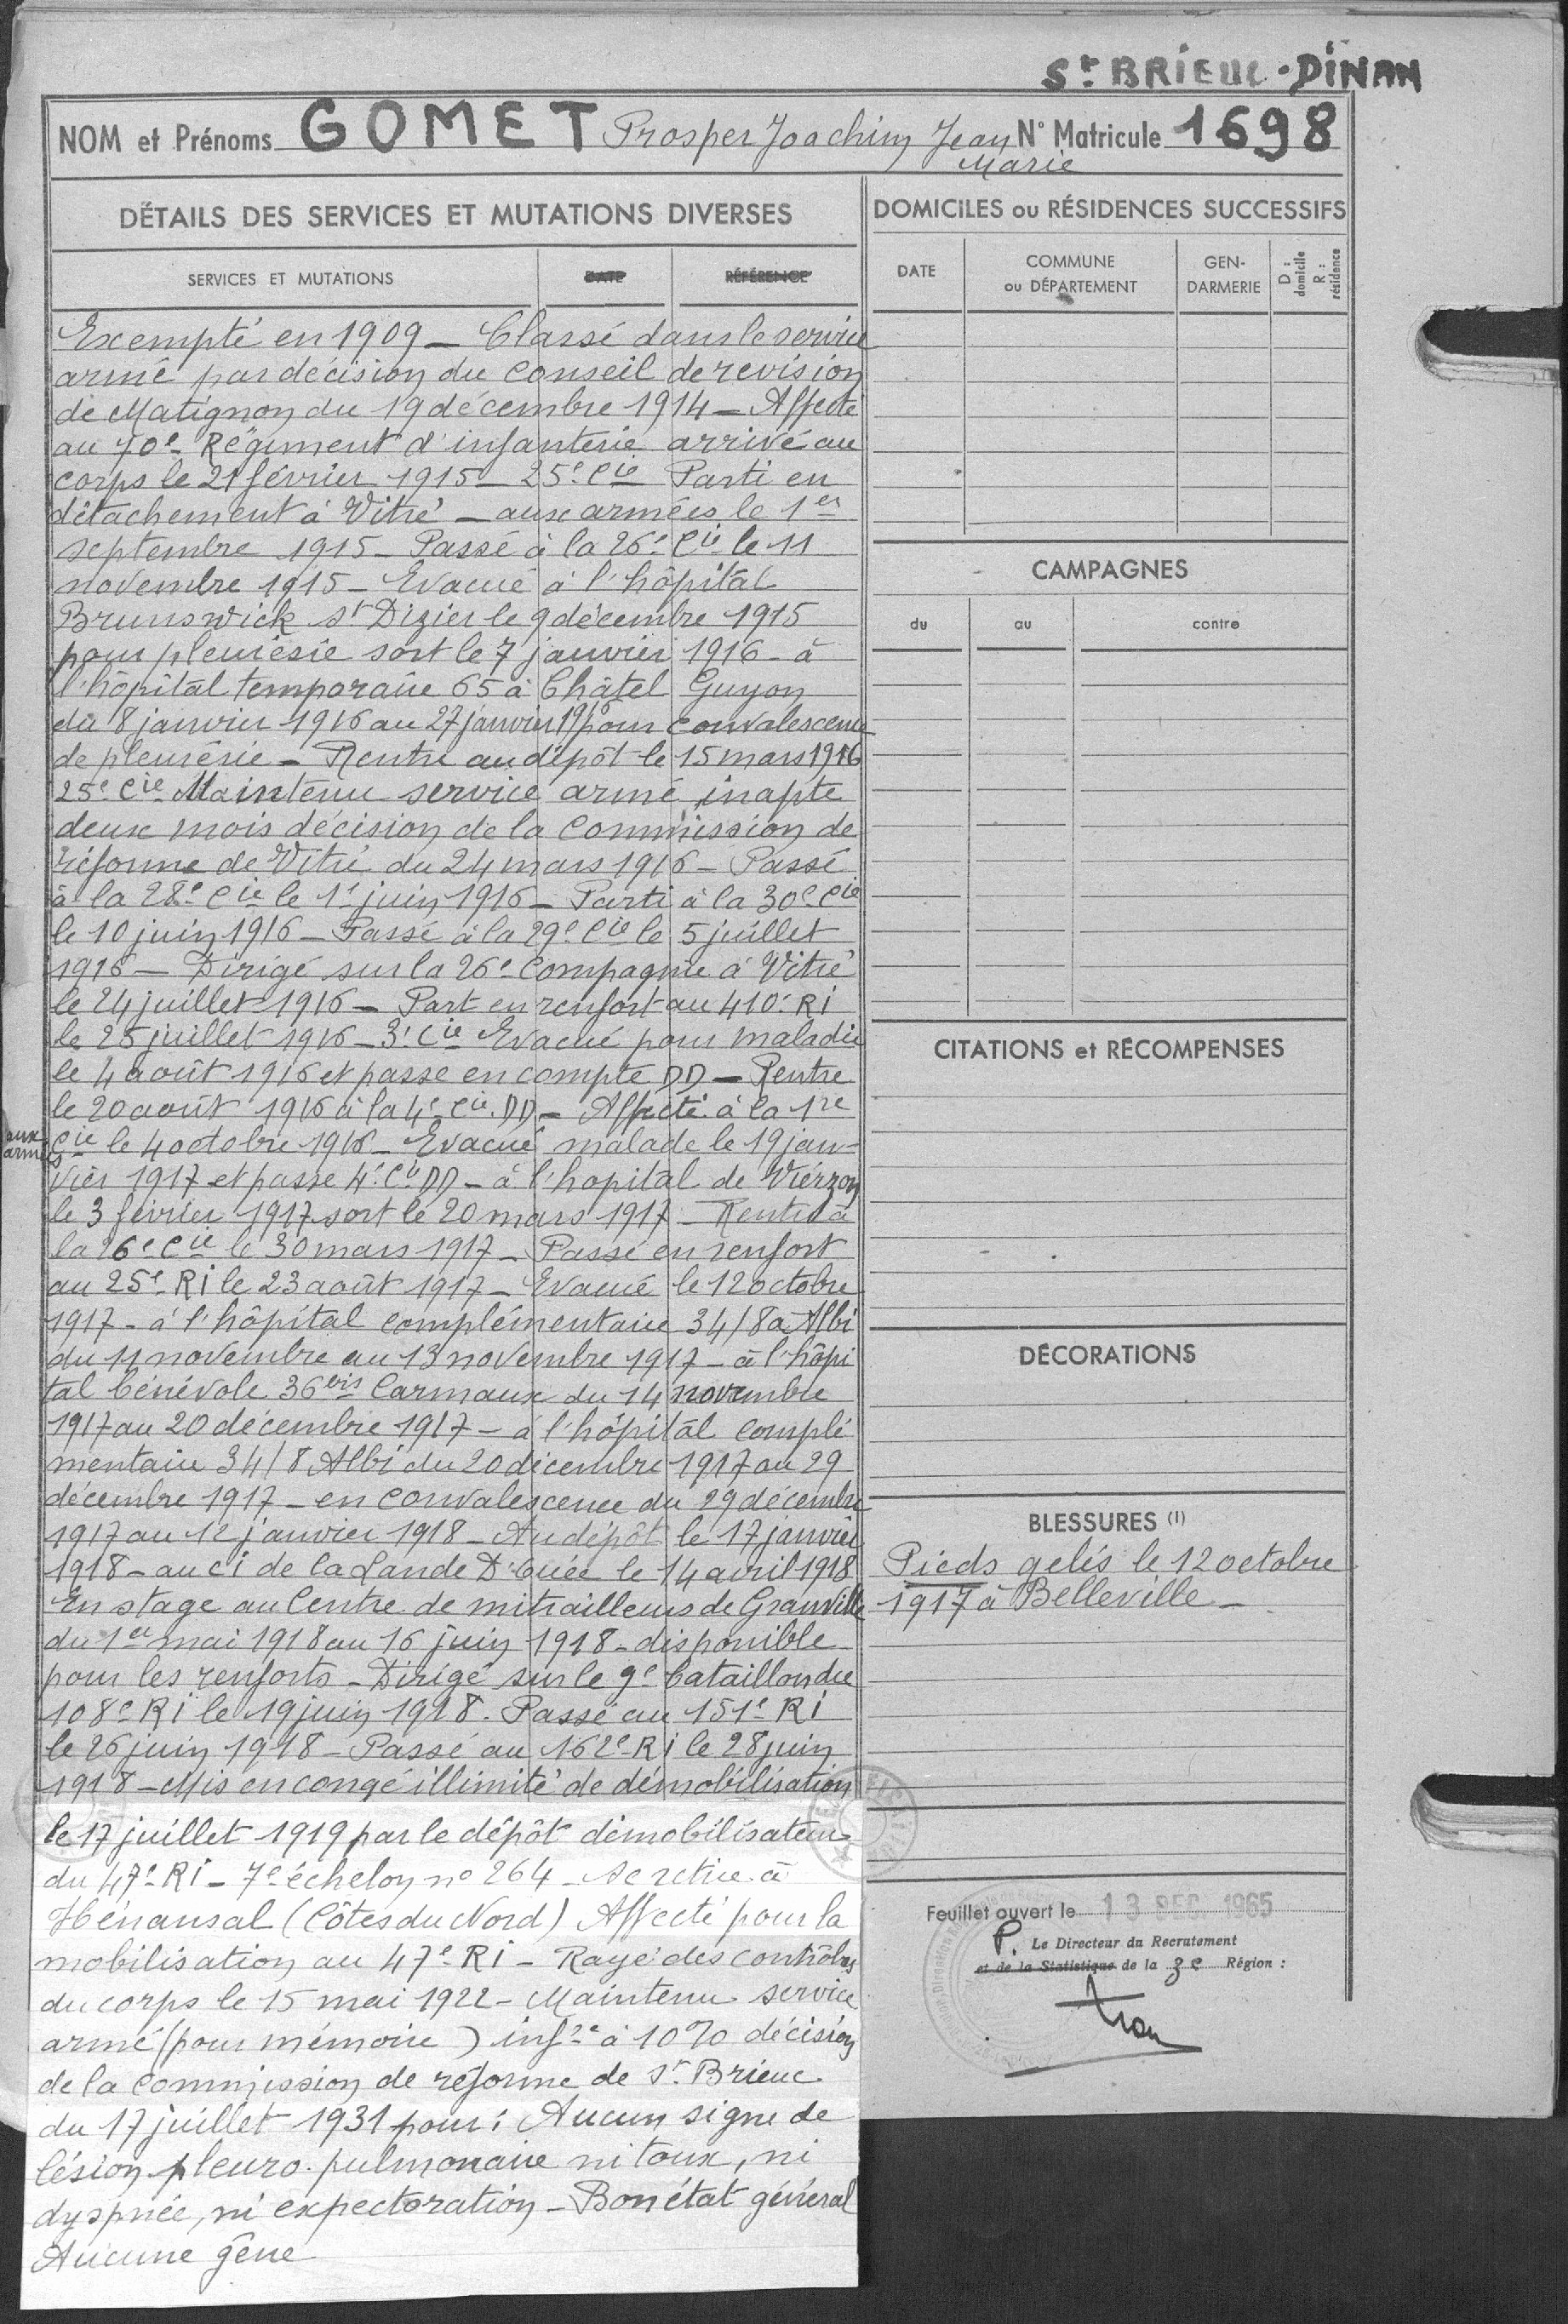 St BRIEUC-DINAN
NOM et Prénoms GOMET Prosper Joachim Jean Marie N° Matricule 1698
DÉTAILS DES SERVICES ET MUTATIONS DIVERSES
SERVICES ET MUTATIONS DATE RÉFÉRENCE
Exempté en 1909 _ Classé dans le service
armé par décision du Conseil de revision
de Matignon du 19 décembre 1914 _ Affecté
au 70e Régiment d'infanterie arrivé au
corps le 21 février 1915 _ 25e Cie Parti en
détachement à Vitré _ aux armées le 1er
septembre 1915 _ Passé à la 26e Cie le 11
novembre 1915 _ Evacué à l'hôpital
Brunswick St Dizier le 9 décembre 1915
pour pleurésie sort le 7 janvier 1916 _ à
l'hôpital temporaire 65 à Châtel Guyon
du 8 janvier 1916 au 27 janvier 1916 pour convalescence
de pleurésie _ Rentré au dépôt le 15 mars 1916
25e Cie Maintenu service armé inapte
deux mois décision de la Commission de
réforme de Vitré du 24 mars 1916 _ Passé
à la 28e Cie le 1er juin 1916 _ Parti à la 30e Cie
le 10 juin 1916 _ Passé à la 29e Cie le 5 juillet
1916 _ Dirigé sur la 26e Compagnie à Vitré
le 24 juillet 1916 _ Part en renfort au 410e RI
le 25 juillet 1916 _ 3e Cie Evacué pour maladie
le 4 août 1916 et passe en compte DD _ Rentre
le 20 août 1916 à la 4e Cie DD _ Affecté à la 1re
aux armées
Cie le 4 octobre 1916 _ Evacué malade le 19 jan-
vier 1917 et passe 4e Cie DD _ à l'hopital de Vierzon
le 3 février 1917 sort le 20 mars 1917 _ Rentré à
la 26e Cie le 30 mars 1917 _ Passé en renfort
au 25e RI le 23 août 1917 _ Evacué le 12 octobre
1917 _ à l'hôpital complémentaire 34/8 à Albi
du 11 novembre au 13 novembre 1917 _ à l'hôpi
tal bénévole 36bis Carmaux du 14 novembre
1917 au 20 décembre 1917 _ à l'hôpital complé
mentaire 34/8 Albi du 20 décembre 1917 au 29
décembre 1917 _ en convalescence du 29 décembre
1917 au 12 janvier 1918 _ Au dépôt le 17 janvier
1918 _ au CI de la Lande D'Ouée le 14 avril 1918
En stage au Centre de mitrailleurs de Granville
du 1er mai 1918 au 16 juin 1918 _ disponible
pour les renforts _ Dirigé sur le 9e bataillon du
108e RI le 19 juin 1918. Passé au 151e RI
le 26 juin 1918 _ Passé au 162e RI le 28 juin
1918 _ Mis en congé illimité de démobilisation
le 17 juillet 1919 par le dépôt démobilisateur
du 47e RI _ 7e échelon no 264 _ se retire à
Hénansal (Côtes du Nord) Affecté pour la
mobilisation au 47e RI _ Rayé des contrôles
du corps le 15 mai 1922 _ Maintenu service
armé (pour mémoire) infre à 10% décision
de la Commission de réforme de St Brieuc
du 17 juillet 1931 pour : Aucun signe de
lésion pleuro-pulmonaire ni toux, ni
dyspnée, ni expectoration _ Bon état général
Aucune gêne
DOMICILES ou RÉSIDENCES SUCCESSIFS
DATE COMMUNE ou DÉPARTEMENT GEN-DARMERIE D : domicile R : résidence
CAMPAGNES
du au contre
CITATIONS et RÉCOMPENSES
DÉCORATIONS
BLESSURES (1)
Pieds gelés le 12 octobre
1917 à Belleville _
Feuillet ouvert le 13 DEC. 1965
P. Le Directeur du Recrutement
et de la Statistique de la 3e Région :